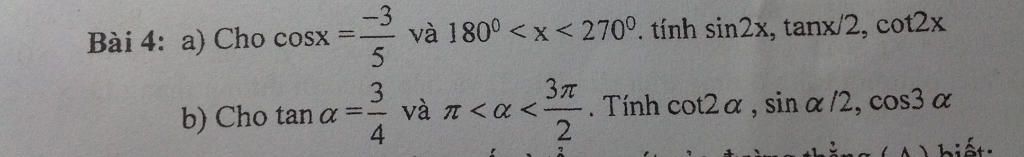 Bài 4: a) Cho cosx = -3/5 và 180⁰ < x < 270⁰. tính sin2x, tanx/2, cot2x
b) Cho tan α = 3/4 và π < α < 3π/2 . Tính cot2 α , sin α /2, cos3 α
thẳng ( Δ ) biết: